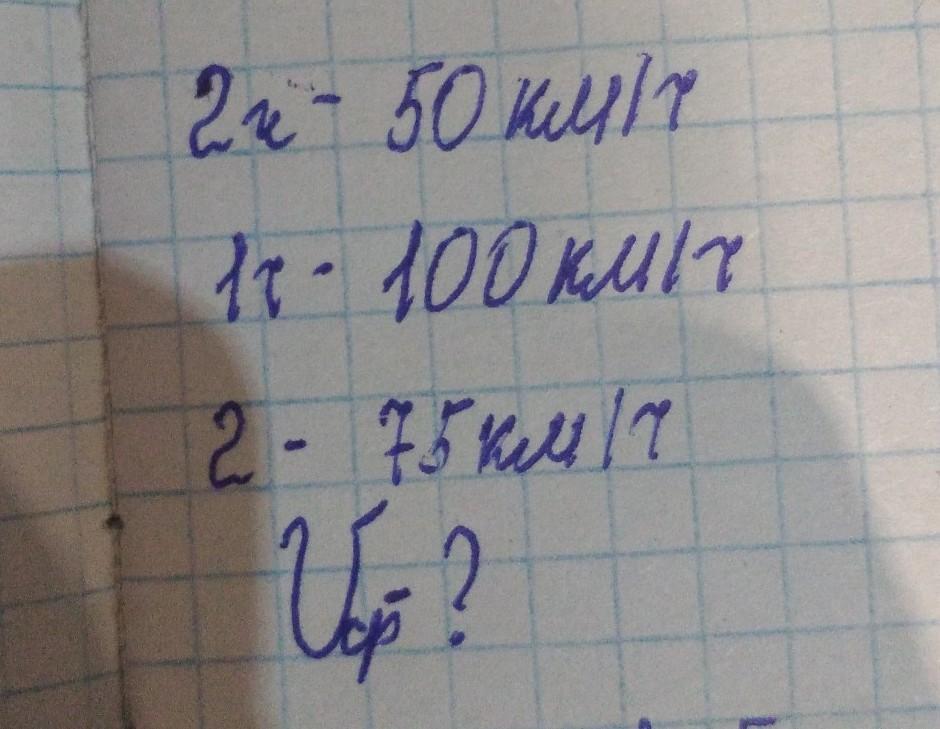 2ч - 50 км/ч
1ч - 100 км/ч
2 - 75 км/ч
Vср - ?